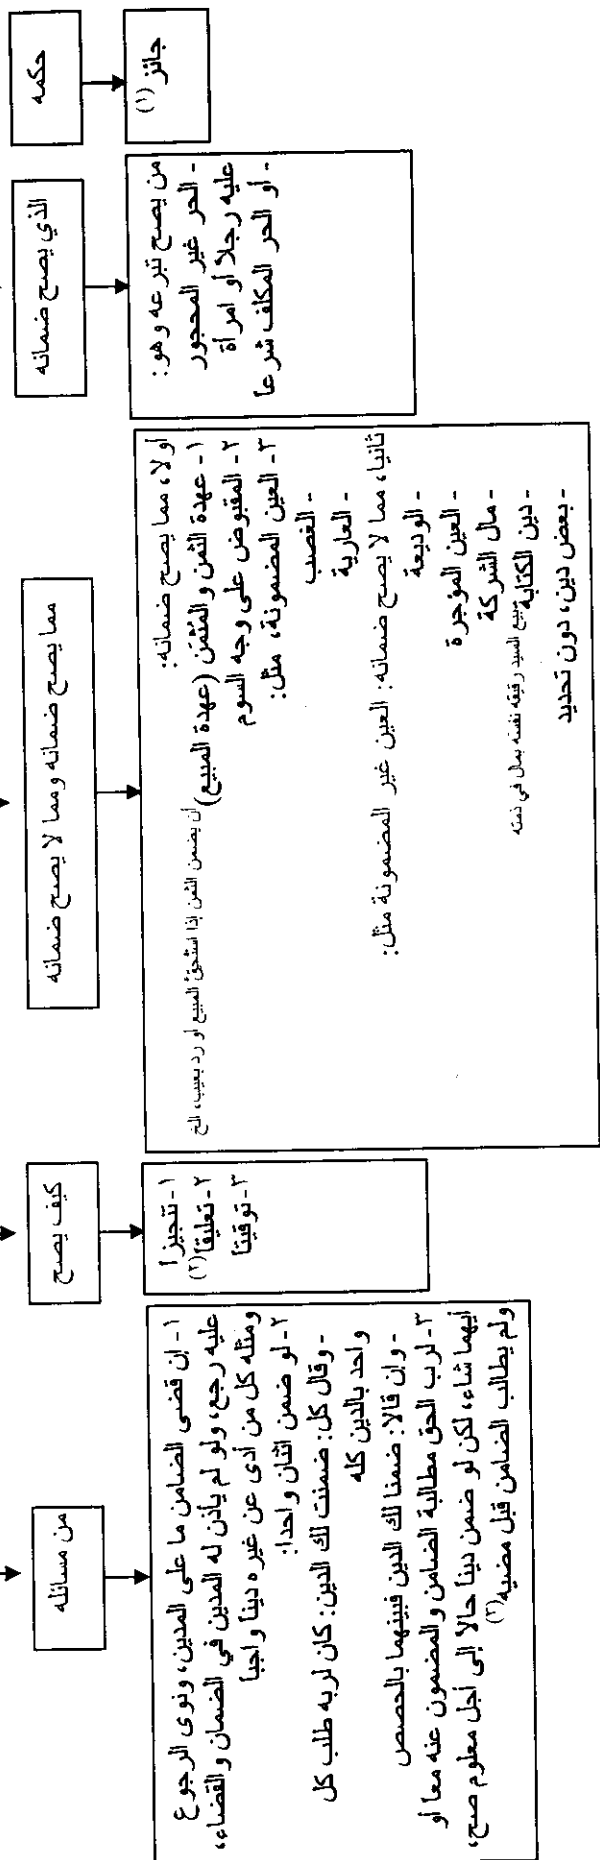 حكمه
جائز (١)
الذي يصح ضمانه
من يصح تبرعه وهو:
- الحر غير المحجور
عليه رجلاً أو امرأة
- أو الحر المكلف شرعا
مما يصح ضمانه ومما لا يصح ضمانه
أولا، مما يصح ضمانه:
١- عهدة الثمن والمثمن (عهدة المبيع)
أن يضمن الثمن إذا استحق المبيع أو رد بعيب، الخ
٢- المقبوض على وجه السوم
٣- العين المضمونة، مثل:
- الغصب
- العارية
ثانيا، مما لا يصح ضمانه: العين غير المضمونة مثل:
- الوديعة
- العين المؤجرة
- مال الشركة
- دين الكتابة
بيع السيد رقيقه نفسه بمال في ذمته
- بعض دين، دون تحديد
كيف يصح
١- تنجيزا
٢- تعليقا (٢)
٣- توقيتا
من مسائله
١- إن قضى الضامن ما على المدين، ونوى الرجوع
عليه رجع، ولو لم يأذن له المدين في الضمان والقضاء،
ومثله كل من أدى عن غيره دينا واجبا
٢- لو ضمن اثنان واحدا:
- وقال كل: ضمنت لك الدين: كان لربه طلب كل
واحد بالدين كله
- وإن قالا: ضمنا لك الدين فبينهما بالحصص
٣- لرب الحق مطالبة الضامن والمضمون عنه معا أو
أيهما شاء، لكن لو ضمن دينا حالا إلى أجل معلوم صح،
ولم يطالب الضامن قبل مضيه (٣)